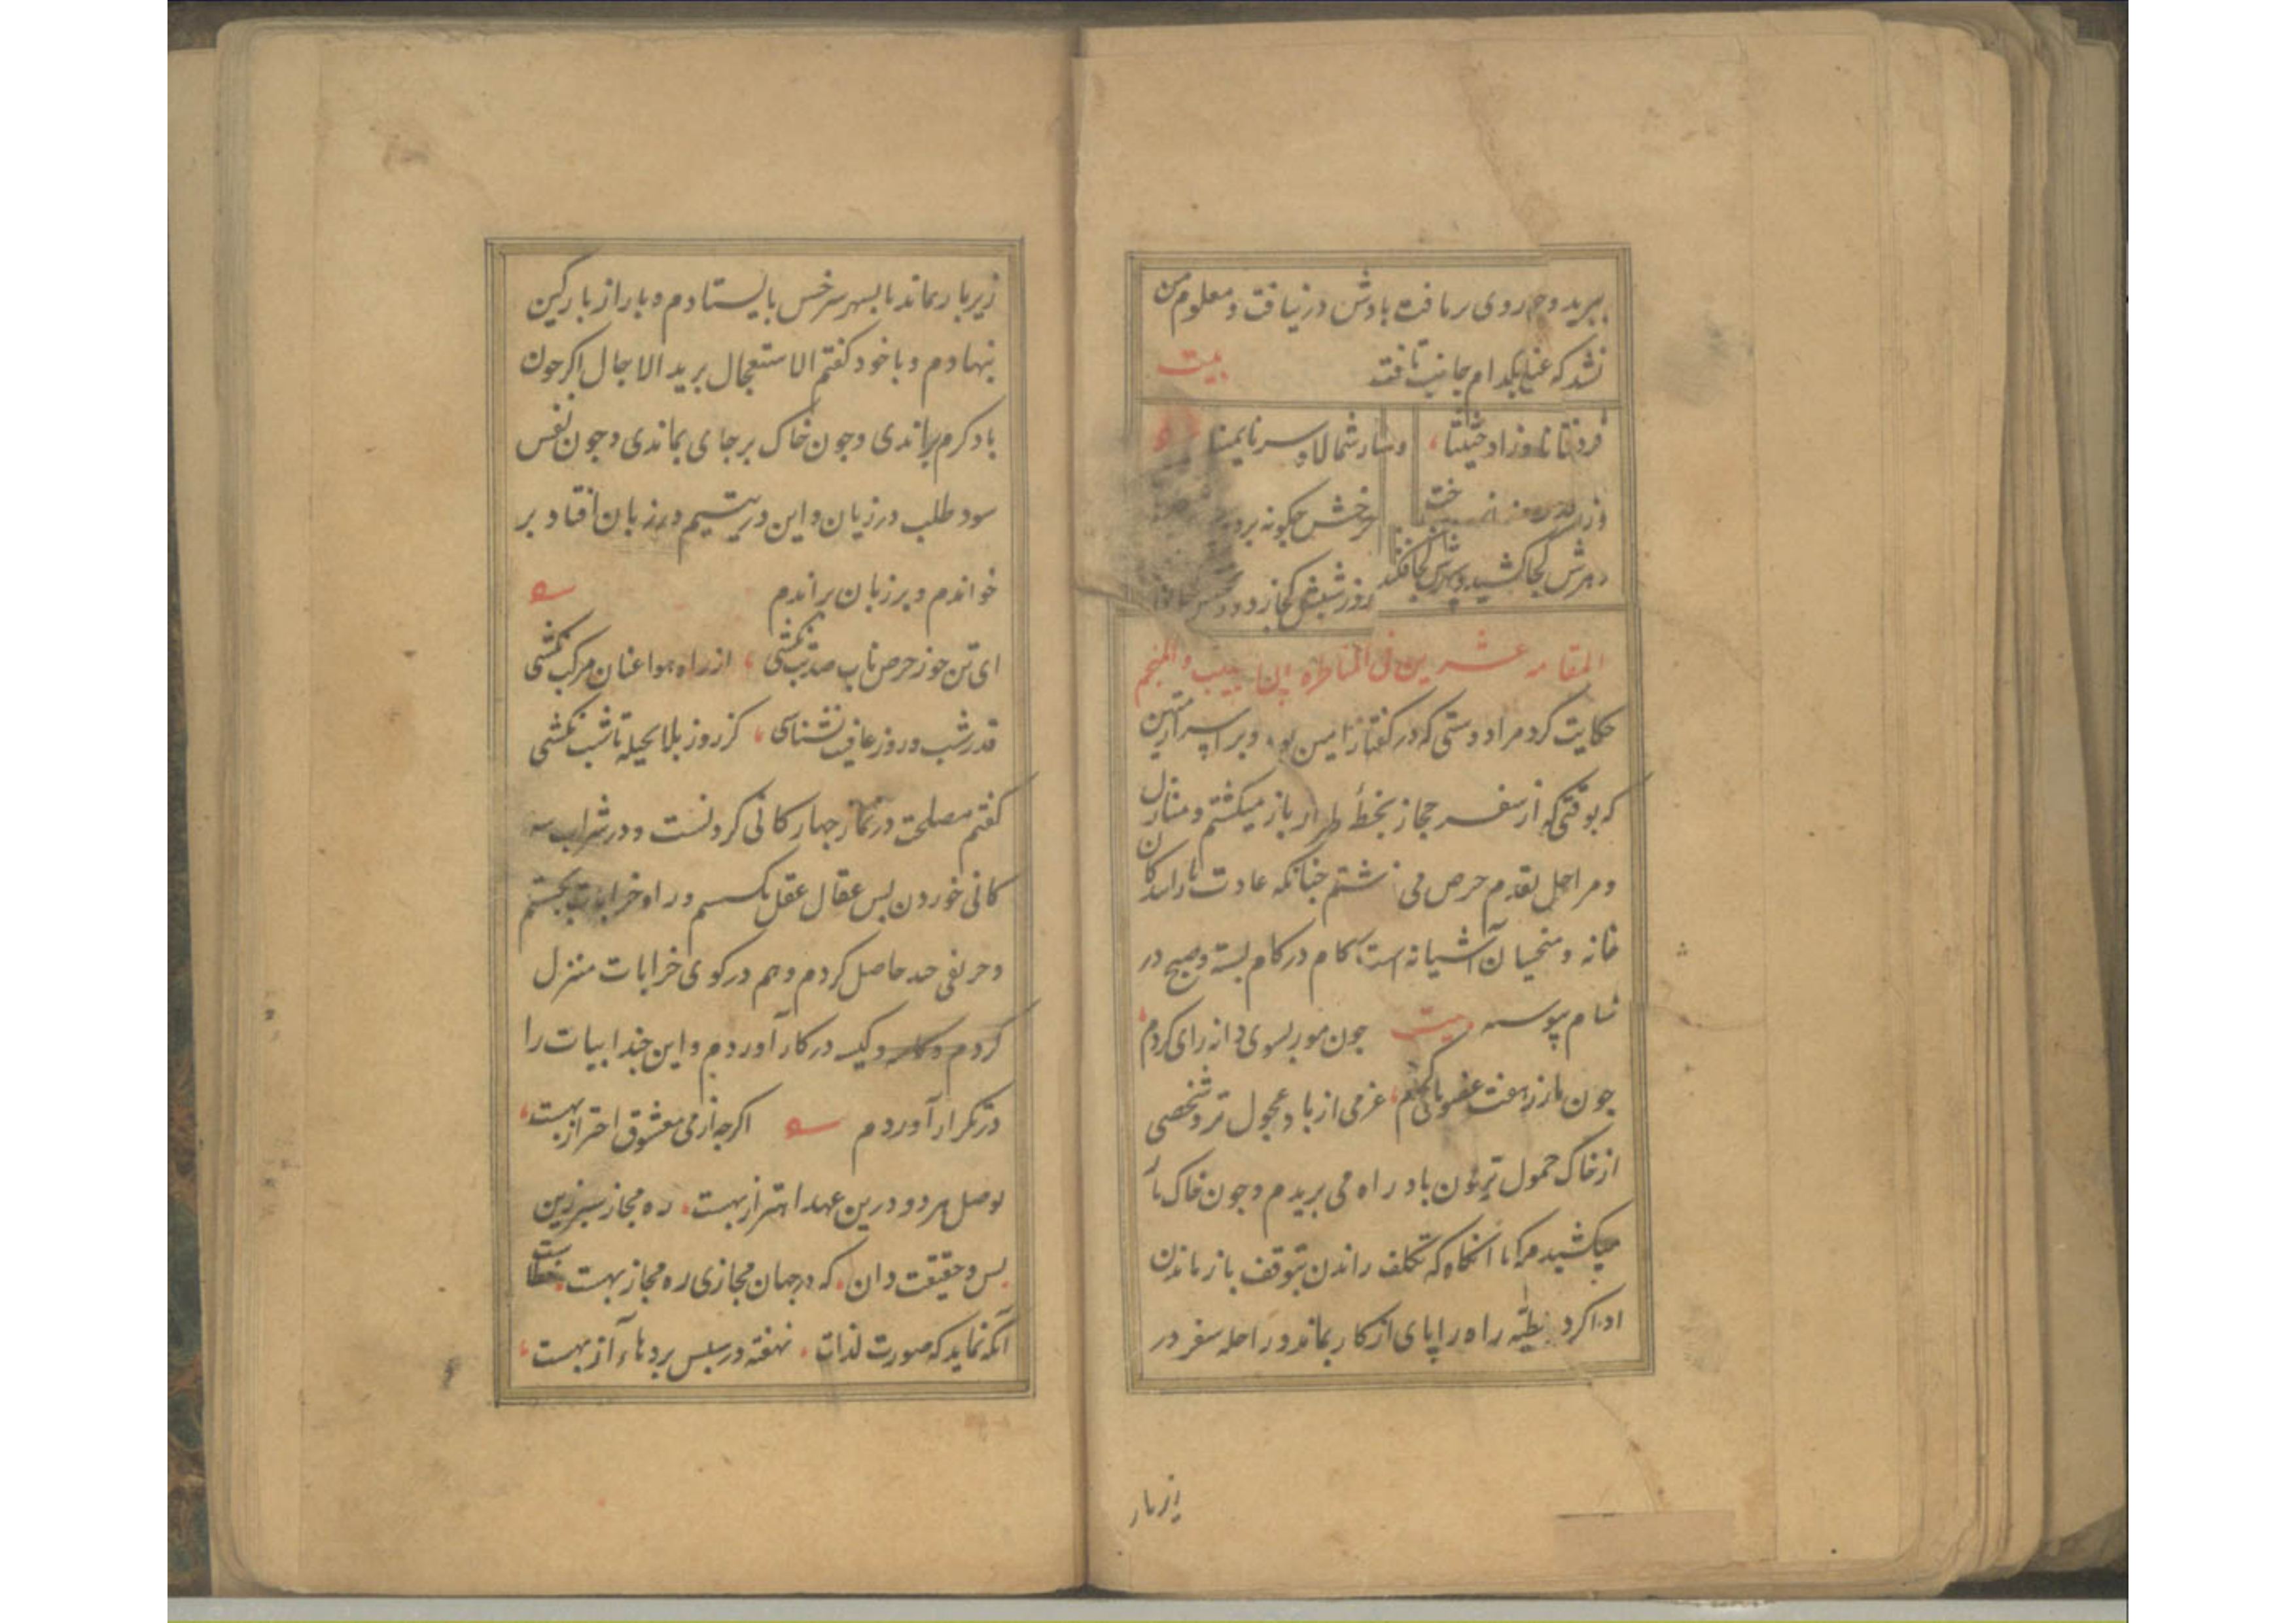 ببرید و چو روی برتافت بادش درنیافت و معلوم من
نشد که عنان بکدام جانب تافت بیت
وسار شمالا و سرنا یمینا
چرخش چکونه برد
دهرش کجا کشید و سپهرش کجا فکند روز و شبش کجا زد و
المقامه عشرین فی المناظره بین الطبیب والمنجم
حکایت کرد مرا دوستی که در کفتار امین بود و بر اسرار متین
که بوقتی که از سفر حجاز بخطهٔ طراز باز میکشتم و منازل
و مراحل بقدم حرص می نوشتم چنانکه عادت
خانه و منحیان آشیانه است کام در کام بسته و صبح در
شام پیوسته بیت جون مور بسوی دانه رای کردم
جون مار ز هفت عضو پای کردم عزمی از باد عجول تر و شخصی
از خاک حمول تر جون باد راه می بریدم و جون خاک بار
میکشیدم تا آنکاه که تکلف راندن بتوقف باز ماندن
ادا کرد مطیه راه را پای از کار بماند و راحله سفر در
زیر بار
زیر بار بماند بابسهر سرخس بایستادم و بار از بارکین
بنهادم و با خود کفتم الاستعجال برید الاجال اکر جون
باد کرم براندی و جون خاک بر جای بماندی و جون نفس
سود طلب در زیان و این در یتیم در زبان افتاد بر
خواندم و بر زبان براندم
ای تن جو ز حرص ناب صد تب نکشی از راه هوا عنان مرکب نکشی
قدر شب و روز عافیت نشناسی کز روز بلا بحیله تا شب نکشی
کفتم مصلحت در نماز جهارکانی کردنست و در شراب سه
کانی خوردن بس عقال عقل بکسستم و راه خرابات بجستم
و حریفی چند حاصل کردم و هم در کوی خرابات منزل
کردم و کاسه و کیسه در کار آوردم و این چند ابیات را
در تکرار آوردم اکرچه از می و معشوق احتراز بهست
بوصل هر دو درین عهد اهتزاز بهست ره مجاز سپر زین
بس و حقیقت دان که در جهان مجازی ره مجاز بهست خطاست
آنکه نماید که صورت لذات نهفته در سبس بردهاء آز بهست